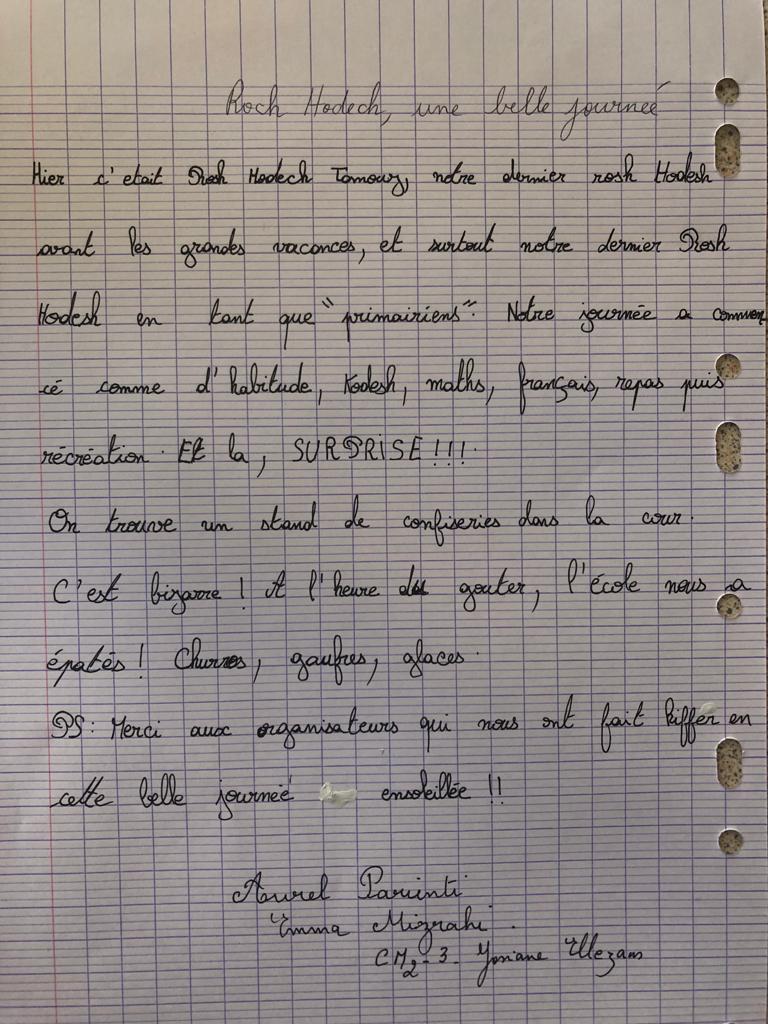 Roch Hodech, une belle journeé
Hier c'etait Rosh Hodech Tamouz, notre dernier rosh Hodesh
avant les grandes vacances, et surtout notre dernier Rosh
Hodesh en tant que "primairiens". Notre journée a commen
cé comme d'habitude, Kodesh, maths, français, repas puis
récréation. Et la, SURPRISE!!!
On trouve un stand de confiseries dans la cour.
C'est bizarre! A l'heure du gouter, l'école nous a
épatés! Churros, gaufres, glaces.
PS: Merci aux organisateurs qui nous ont fait kiffer en
cette belle journeé ensoleillée!!
Aurel Parienti
Emma Mizrahi.
CM2-3. Yoniane